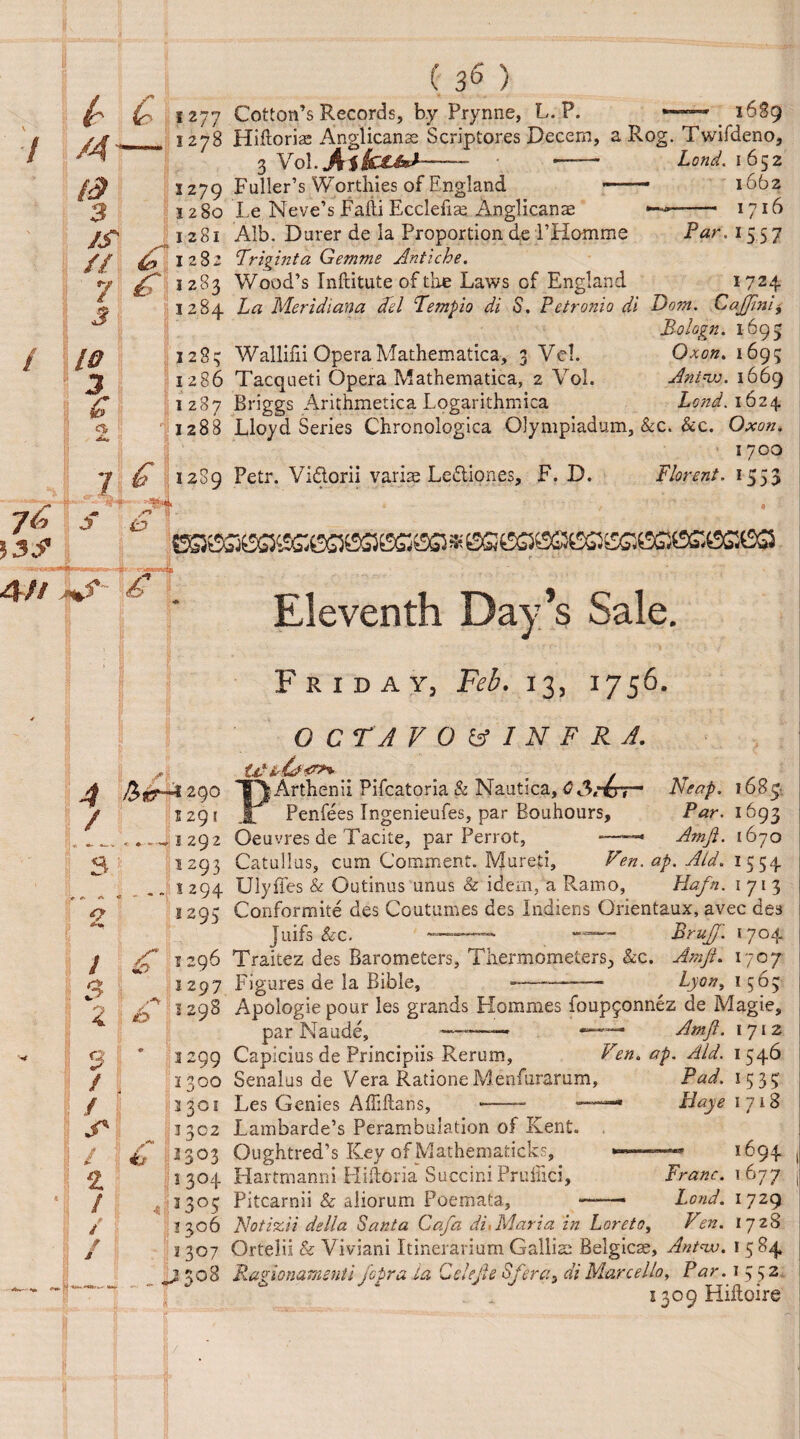 ( 36 )
6 6 1277 Cotton's Records, by Prynne, L. P. —— 1689
14 — 1278 Hiſtoriæ Anglicanæ Scriptores Decem, a Rog. Twiſdeno,
3 Vol. —— Lond. 1652
13 1279 Fuller's Worthies of England —— 1662
3 1280 Le Neve's Faſti Eccleſiæ Anglicanæ —— 1716
15 1281 Alb. Durer de la Proportion de l'Homme Par. 1557
11 6 1282 Triginta Gemme Antiche.
7 6 1283 Wood's Inſtitute of the Laws of England 1724
3 1284 La Meridiana del Tempio di S. Petronio di Dom. Caſſini,
Bologn. 1695
10 1285 Walliſii Opera Mathematica, 3 Vol. Oxon. 1695
3 1286 Tacqueti Opera Mathematica, 2 Vol. Antw. 1669
6 1287 Briggs Arithmetica Logarithmica Lond. 1624
2 1288 Lloyd Series Chronologica Olympiadum, &c. &c. Oxon.
1700
7 6 1289 Petr. Victorii variæ Lectiones, F. D. Florent. 1553
76 5 6
335
411 5 6
Eleventh Day's Sale.
FRIDAY, Feb. 13, 1756.
OCTAVO & INFRA.
4 1290 PArthenii Piſcatoria & Nautica, Neap. 1685
1 1291 Penſées Ingenieuſes, par Bouhours, Par. 1693
1292 Oeuvres de Tacite, par Perrot, —— Amſt. 1670
3 1293 Catullus, cum Comment. Mureti, Ven. ap. Ald. 1554
1294 Ulyſſes & Outinus unus & idem, a Ramo, Hafn. 1713
2 1295 Conformité des Coutumes des Indiens Orientaux, avec des
Juifs &c. —— —— Bruſſ. 1704
1 6 1296 Traitez des Barometers, Thermometers, &c. Amſt. 1707
3 1297 Figures de la Bible, —— Lyon, 1565
2 6 1298 Apologie pour les grands Hommes ſoupçonnéz de Magie,
par Naudé, —— —— Amſt. 1712
3 1299 Capicius de Principiis Rerum, Ven. ap. Ald. 1546
1 1300 Senalus de Vera Ratione Menſurarum, Pad. 1535
1 1301 Les Genies Aſſiſtans, —— —— Haye 1718
5 1302 Lambarde's Perambulation of Kent.
1 6 1303 Oughtred's Key of Mathematicks, —— 1694
2 1304 Hartmanni Hiſtoria Succini Pruſſici, Franc. 1677
1 1305 Pitcarnii & aliorum Poemata, —— Lond. 1729
1 1306 Notizii della Santa Caſa di Maria in Loreto, Ven. 1728
1 1307 Ortelii & Viviani Itinerarium Galliæ Belgicæ, Antw. 1584
1308 Ragionamenti ſopra la Celeſte Sfera, di Marcello, Par. 1552
1309 Hiſtoire